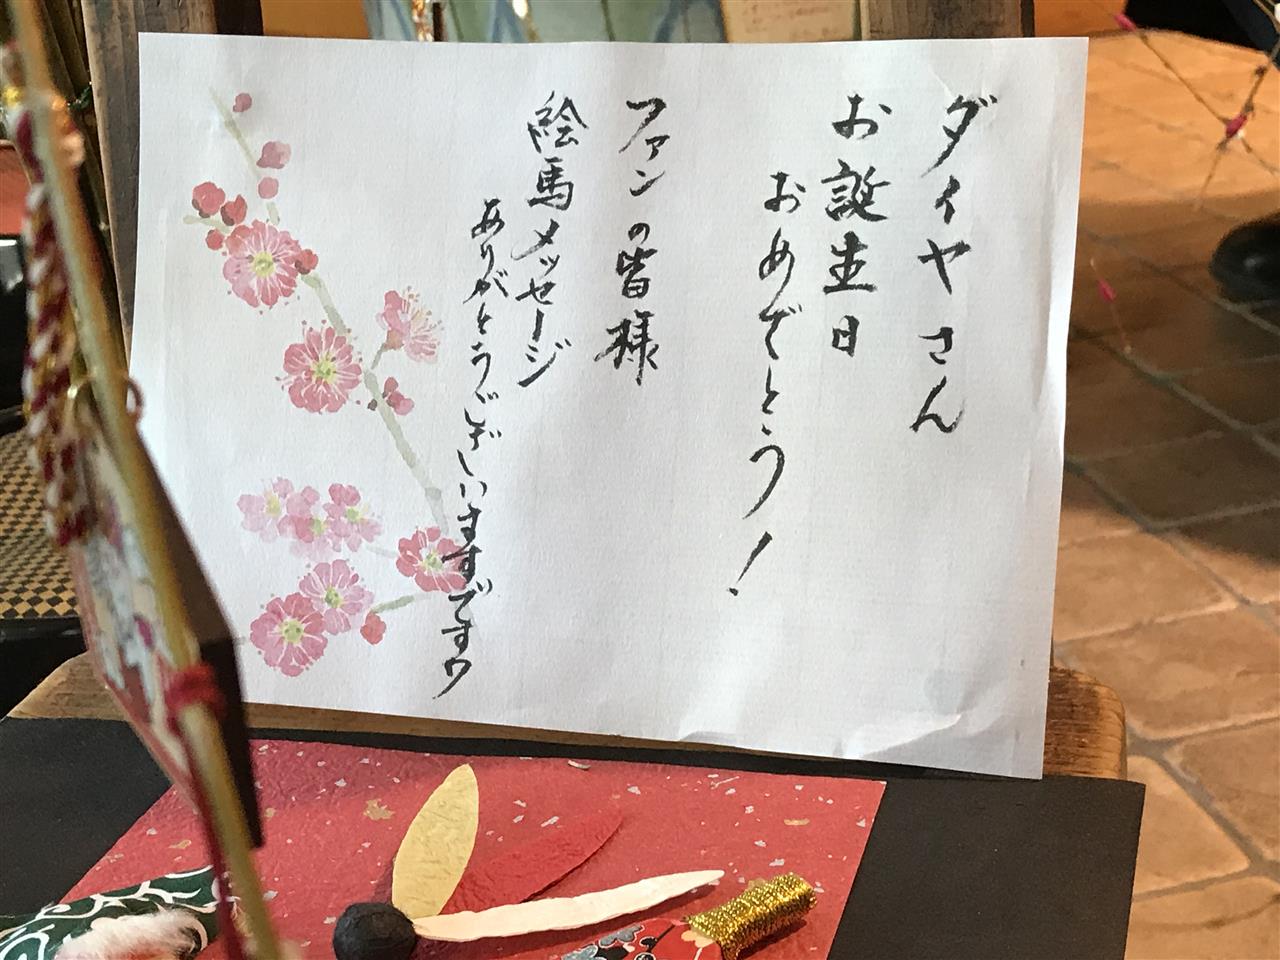 ダイヤさん
お誕生日
おめでとう!
ファンの皆様
絵馬メッセージ
ありがとうございますですワ